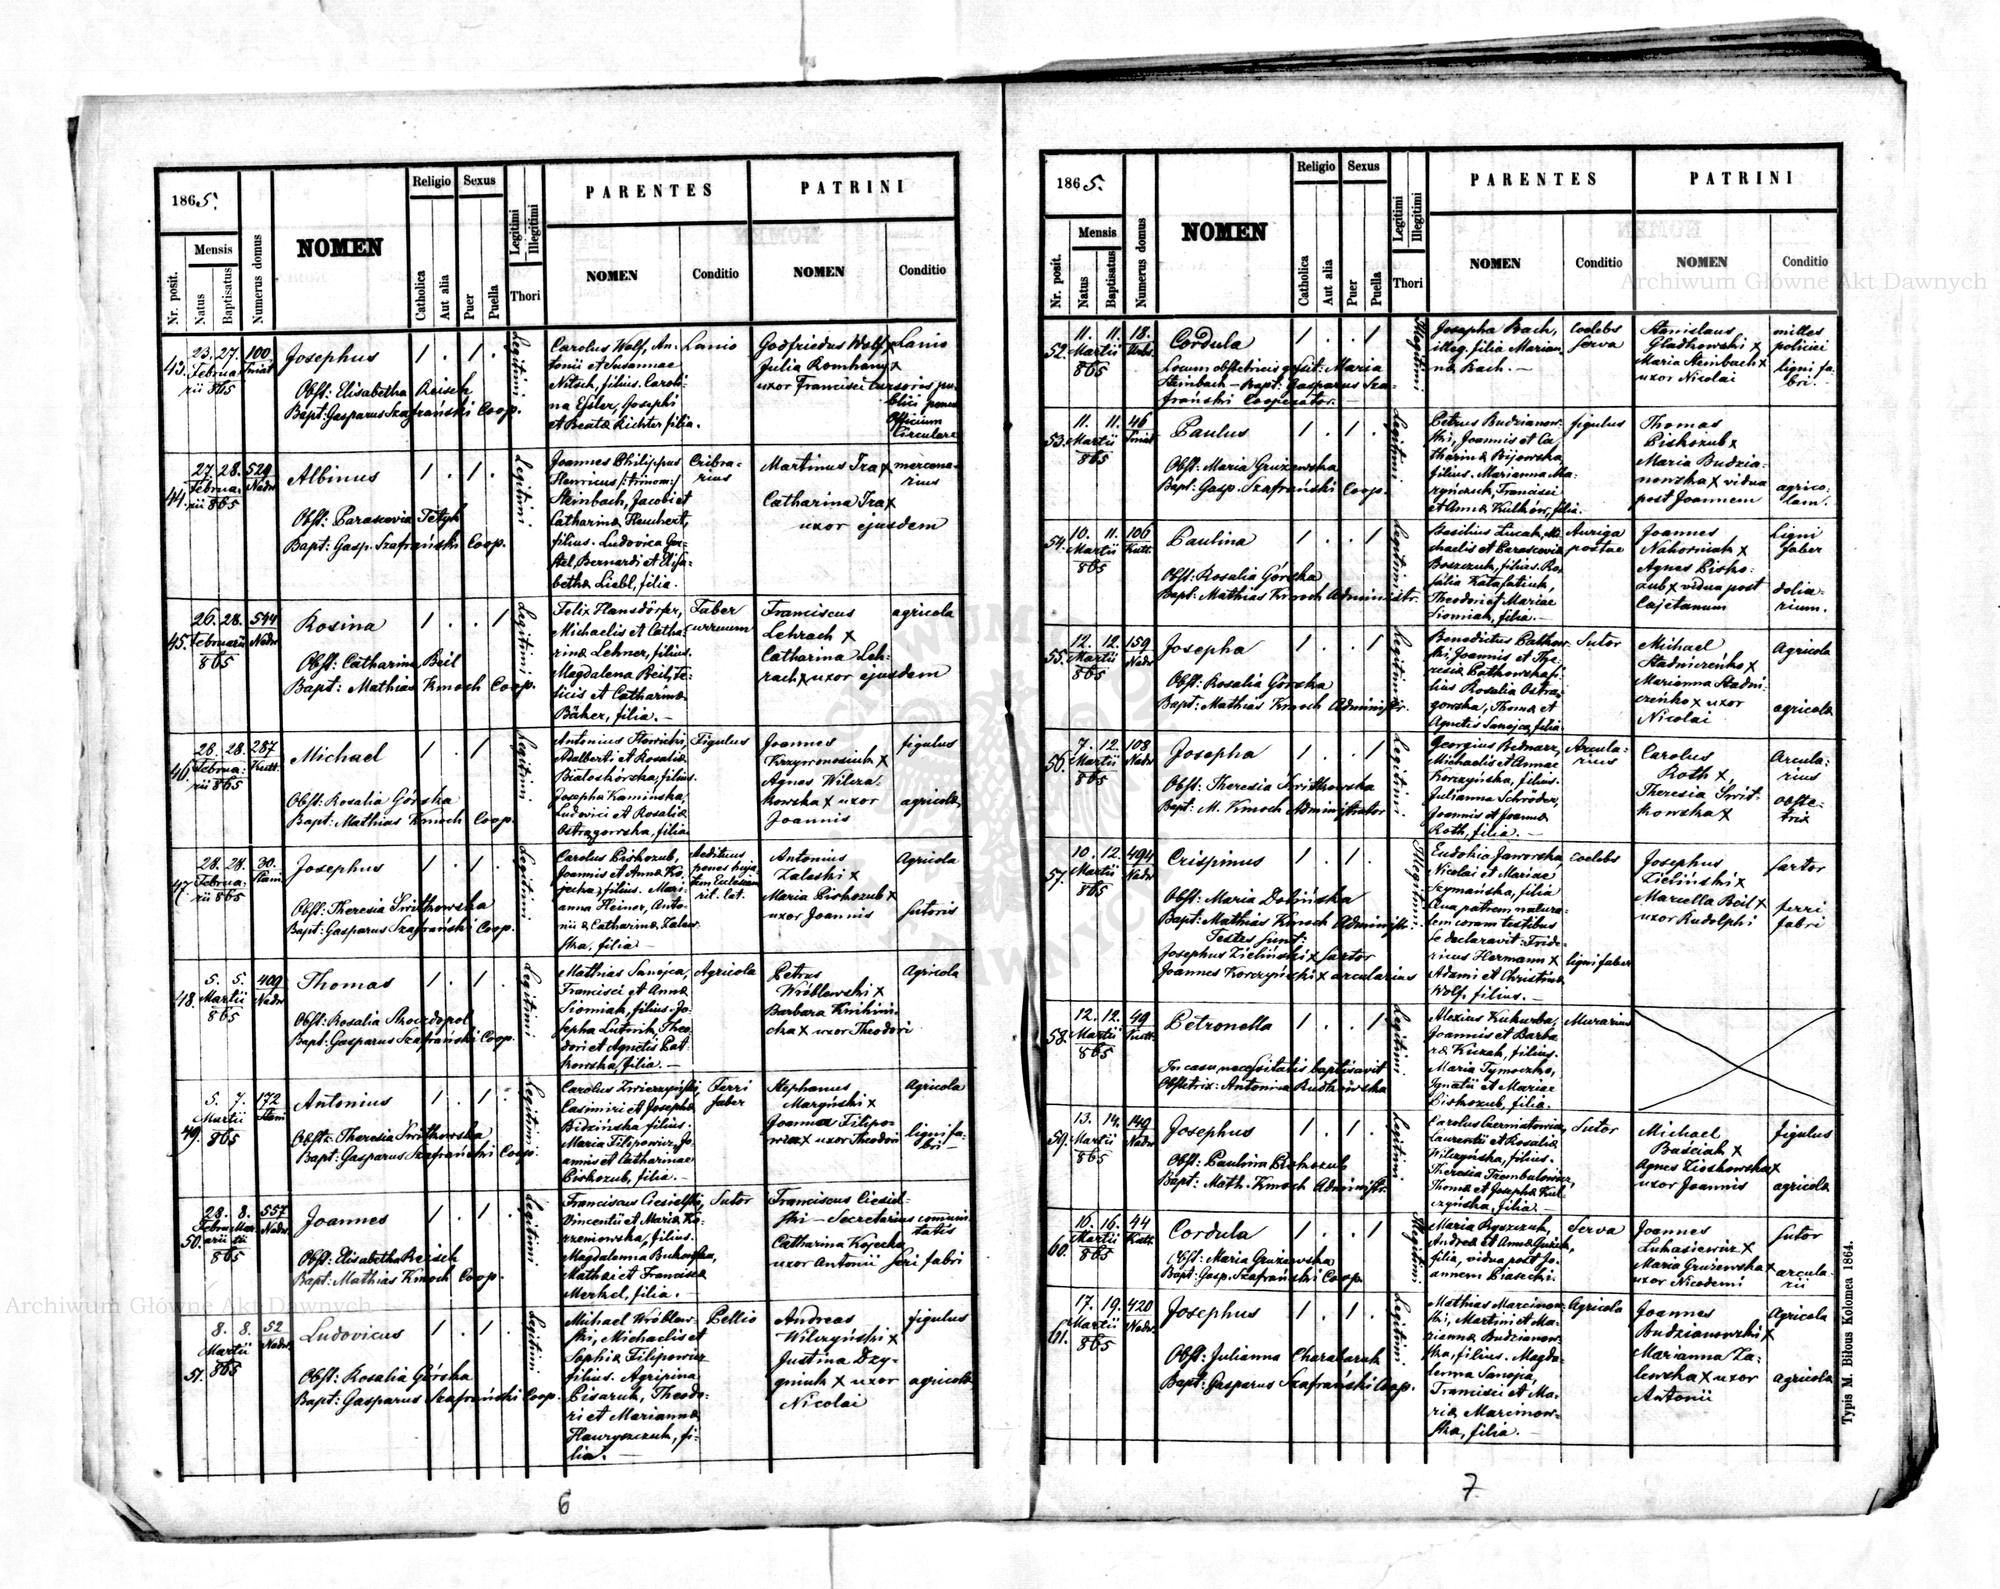 1865.
Nr. posit.
Mensis
Natus
Baptisatus
Numerus domus
NOMEN
Religio
Catholica
Aut alia
Sexus
Puer
Puella
Legitimi
Illegitimi
Thori
PARENTES
NOMEN
Conditio
PATRINI
NOMEN
Conditio
43.
23. 27.
Februa
rii 865
100
Sniat
Josephus
1 . 1 .
Obst: Elisabetha Reisch
Bapt: Gasparus Szafrański Coop.
Legitimi
Carolus Wolf, An-
tonii et Susannae
Nitsch, filius. Caroli-
na Esler, Josephi
et Beatæ Richter filia.
Lanio
Godfriedus Wolf x
Julia Romhany x
uxor Francisci cursoris pu-
blici penes
Officium
Circulare
Lanio
44.
27. 28.
Februa
rii 865
529
Nadw.
Albinus
1 . 1 .
Obst: Parascevia Tetyk
Bapt: Gasp. Szafrański Coop.
Legitimi
Joannes Philippus
Henricus /:trinom:/
Steinbach, Jacobi et
Catharinæ Heuchert,
filius. Ludovica Ger-
stel, Bernardi et Elisa-
bethæ Liebl, filia.
Cribra-
rius
Martinus Tra x
Catharina Tra x
uxor ejusdem
mercena-
rius
45.
26. 28.
Februarii
865
544
Nadw
Rosina
1 . . 1
Obst: Catharina Beil
Bapt: Mathias Kmoch Coop.
Legitimi
Felix Hansdörfer,
Michaelis et Catha-
rinæ Lehner, filius.
Magdalena Beil, Fe-
licis et Catharinæ
Bäker, filia. —
Faber
currurum
Franciscus
Lehrach x
Catharina Leh-
rach x uxor ejusdem
agricola
46.
28. 28.
Februa-
rii 865
287
Kutt.
Michael
1 . 1 .
Obst: Rosalia Górska
Bapt: Mathias Kmoch Coop.
Legitimi
Antonius Slowicki,
Adalberti et Rosaliæ
Bialoskórska, filius.
Josepha Kamińska,
Ludovici et Rosaliæ
Ostrzgorska, filia
Figulus
Joannes
Krzywonosiuk x
Agnes Wilcza
kowska x uxor
Joannis
figulus
agricolæ
47.
28. 28.
Februa-
rii 865
30.
Stani
Josephus
1 . 1 .
Obst: Theresia Switkowska
Bapt: Gasparus Szafrański Coop.
Legitimi
Carolus Piskozub,
Joannis et Annæ Ko-
jecka, filius. Mari-
anna Heiner, Anto-
nii & Catharinæ Zalew-
ska, filia —
Aedituus
penes huja-
tem Ecclesiam
rit. lat.
Antonius
Zaleski x
Maria Piskozub x
uxor Joannis
Agricola
sutoris
48.
5. 5.
Martii
865
409
Nadw
Thomas
1 . 1 .
Obst: Rosalia Skoczdopol
Bapt: Gasparus Szafrański Coop.
Legitimi
Mathias Sanojca,
Francisci et Annæ
Siomiak, filius. Jo-
sepha Lutnik, Theo-
dori et Agnetis Pat-
kowska, filia. —
Agricola
Petrus
Wróblewski x
Barbara
cka x uxor Theodori
Agricola
49.
5. 7.
Martii
865
172
Stani
Antonius
1 . 1 .
Obst: Theresia Switkowska
Bapt: Gasparus Szafrański Coop.
Legitimi
Carolus Zwierzyński,
Casimiri et Josephæ
Bidzińska filius.
Maria Filipowicz, Jo-
annis et Catharinae
Piskozub, filia. —
Ferri
faber
Stephanus
Maryński x
Joanna Filipo-
wicz x uxor Theodori
Agricola
ligni fa-
bri —
50.
28. 8.
Febru Mar-
arii tii
865
557
Nadw.
Joannes
1 . 1 .
Obst: Elisabetha Reisch
Bapt: Mathias Kmoch Coop.
Legitimi
Franciscus Ciesielski,
Vincentii et Mariæ Ko-
rzeniowska, filius.
Magdalenna Bukowska,
Mathæi et Franciscæ
Merkel, filia. —
Sutor
Franciscus Ciesiel-
ski — Secretarius comuni-
tatis
Catharina Kojecka
uxor Antonii feri fabri
51.
8. 8.
Martii
865
52
Nadw.
Ludovicus
1 . 1 .
Obst: Rosalia Górska
Bapt: Gasparus Szafrański Coop.
Legitimi
Michael Wróblew-
ski, Michaelis et
Sophiæ Filipowicz
filius. Agripina
Pisaruk, Theodo-
ri et Mariannæ
Hawryszczuk, fi-
lia. —
Pellio
Andreas
Wilczyński x
Justina Dzy-
gniuk x uxor
Nicolai
figulus
agricolæ
6
1865.
Nr. posit.
Mensis
Natus
Baptisatus
Numerus domus
NOMEN
Religio
Catholica
Aut alia
Sexus
Puer
Puella
Legitimi
Illegitimi
Thori
PARENTES
NOMEN
Conditio
PATRINI
NOMEN
Conditio
52.
11. 11.
Martii
865
18.
Cordula
1 . . 1
Locum obstetricis gesit: Maria
Steinbach — Bapt: Gasparus Sza-
frański Cooperator. —
Illegitimi
Josepha Bach,
illeg. filia Marian-
næ Bach. —
Coelebs
serva
Stanislaus
Gladkowski x
Maria Steinbach x
uxor Nicolai
milles
policiei
ligni fa-
bri. —
53.
11. 11.
Martii
865
46
Sniat
Paulus
1 . 1 .
Obst: Maria Gruzewska
Bapt: Gasp. Szafrański Coop.
Legitimi
Petrus Budzianow-
ski, Joannis et Ca-
tharinæ Bijowska
filius. Marianna Ma-
ryńczuk, Francisci
et Annæ Kulków, filia.
figulus
Thomas
Piskozub x
Maria Budzia-
nowska x vidua
post Joannem
agrico-
lam.
54.
10. 11.
Martii
865
106
Kutt.
Paulina
1 . . 1
Obst: Rosalia Górska
Bapt: Mathias Kmoch Administr.
Legitimi
Basilius Lucak, Mi-
chaelis et Parasceviæ
Boszczuk, filius. Ro-
salia Katafatiuk,
Theodori et Mariæ
Siomiak, filia. —
Auriga
postae
Joannes
Nahorniak x
Agnes Pisko-
zub x vidua post
Cajetanum
Ligni
faber
dolia-
rium.
55.
12. 12.
Martii
865
159
Nadw
Josepha
1 . . 1
Obst: Rosalia Górska
Bapt: Mathias Kmoch Administr.
Legitimi
Benedictus Patkow-
ski, Joannis et The-
resiæ Patkowska fi-
lius Rosalia Ostra-
gorska, Thomæ et
Agnetis Sanojca, filia
Sutor
Michael
Stadniczeńko x
Marianna Stadni-
czeńko x uxor
Nicolai
Agricola
agricolæ
56.
7. 12.
Martii
865
108
Nadw
Josepha
1 . . 1
Obst: Theresia Switkowska
Bapt: M. Kmoch Administrator
Legitimi
Georgius Bednarz,
Michaelis et Annae
Korczyńska, filius.
Julianna Schröder,
Joannis et Joannæ
Roth, filia. —
Arcula-
rius
Carolus
Roth x,
Theresia Swit-
kowska x
Arcula-
rius
obste-
trix
57.
10. 12.
Martii
865
494
Nadw
Crispinus
1 . 1 .
Obst: Maria Dolińska
Bapt: Mathias Kmoch Administr.
Testes sunt:
Josephus Zieliński x sartor
Joannes Korczyński x arcularius
Illegitimi
Eudokia Jaworska,
Nicolai et Mariae
Szymańska, filia
Qua patrem natura-
lem coram testibus
se declaravit: Fride-
ricus Hermann x
Adami et Christinæ
Wolf, filius. —
coelebs
ligni faber
Josephus
Zieliński x
Marcella Beil x
uxor Rudolphi
sartor
ferri
fabri
58.
12. 12.
Martii
865
49
Kutt.
Petronella
1 . . 1
In casu necessitatis baptisavit
Obstetrix: Antonina Rudkowska
Legitimi
Alexius Kukurba,
Joannis et Barba-
ræ Kuzak, filius.
Maria Tymoczko,
Ignatii et Mariae
Piskozub, filia.
Murarius
59.
13. 14.
Martii
865
149
Nadw
Josephus
1 . 1 .
Obst: Paulina Piskozub
Bapt: Math. Kmoch Administr.
Legitimi
Carolus Czermatowicz,
Laurentii et Rosaliæ
Wilczyńska, filius.
Theresia Trembalowicz,
Thomæ et Josephæ Kul-
czyńska, filia.
Sutor
Michael
Baściak x
Agnes Ziołkowska x
uxor Joannis
figulus
agricolæ
60.
16. 16.
Martii
865
44
Kutt.
Cordula
1 . . 1
Obst: Maria Gruzewska
Bapt: Gasp. Szafrański Coop.
Illegitimi
Maria Ryszczuk,
Andreæ et Annæ Guzik,
filia, vidua post Jo-
annem Piasecki.
Serva
Joannes
Lukasiewicz x
Maria Gruzewska x
uxor Nicodemi
sutor
arcula-
rii
61.
17. 19.
Martii
865
420
Nadw.
Josephus
1 . 1 .
Obst: Julianna Charabaruk
Bapt: Gasparus Szafrański Coop.
Legitimi
Mathias Marcinow-
ski, Martini et Ma-
riannæ Budzianow-
ska, filius. Magda-
lenna Sanojca,
Francisci et Ma-
riæ Marcinow-
ska, filia. —
Agricola
Joannes
Budzianowski x
Marianna Za-
lewska x uxor
Antonii
Agricola
agricolæ
Typis M. Biłous Kolomea 1864.
7
Archiwum Główne Akt Dawnych
Archiwum Główne Akt Dawnych